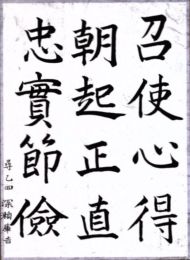 召使心得
朝起正直
忠實節儉
尋乙四